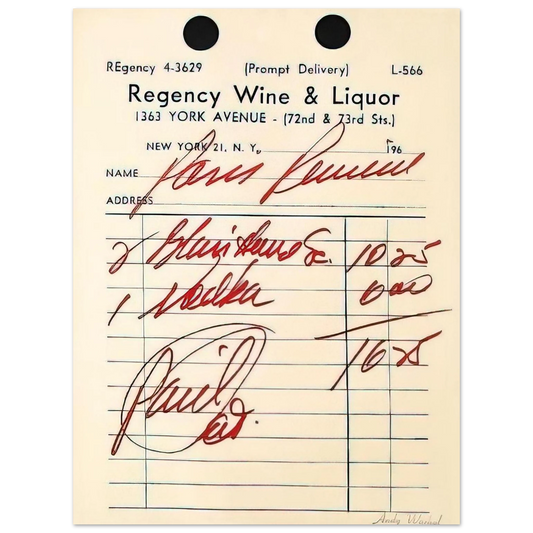 REgency 4-3629 (Prompt Delivery) L-566
Regency Wine & Liquor
1363 YORK AVENUE - (72nd & 73rd Sts.)
NEW YORK 21, N. Y., 196
NAME Paris
ADDRESS
2 10 25
1 Vodka 6 00
16 25
Paid
Andy Warhol